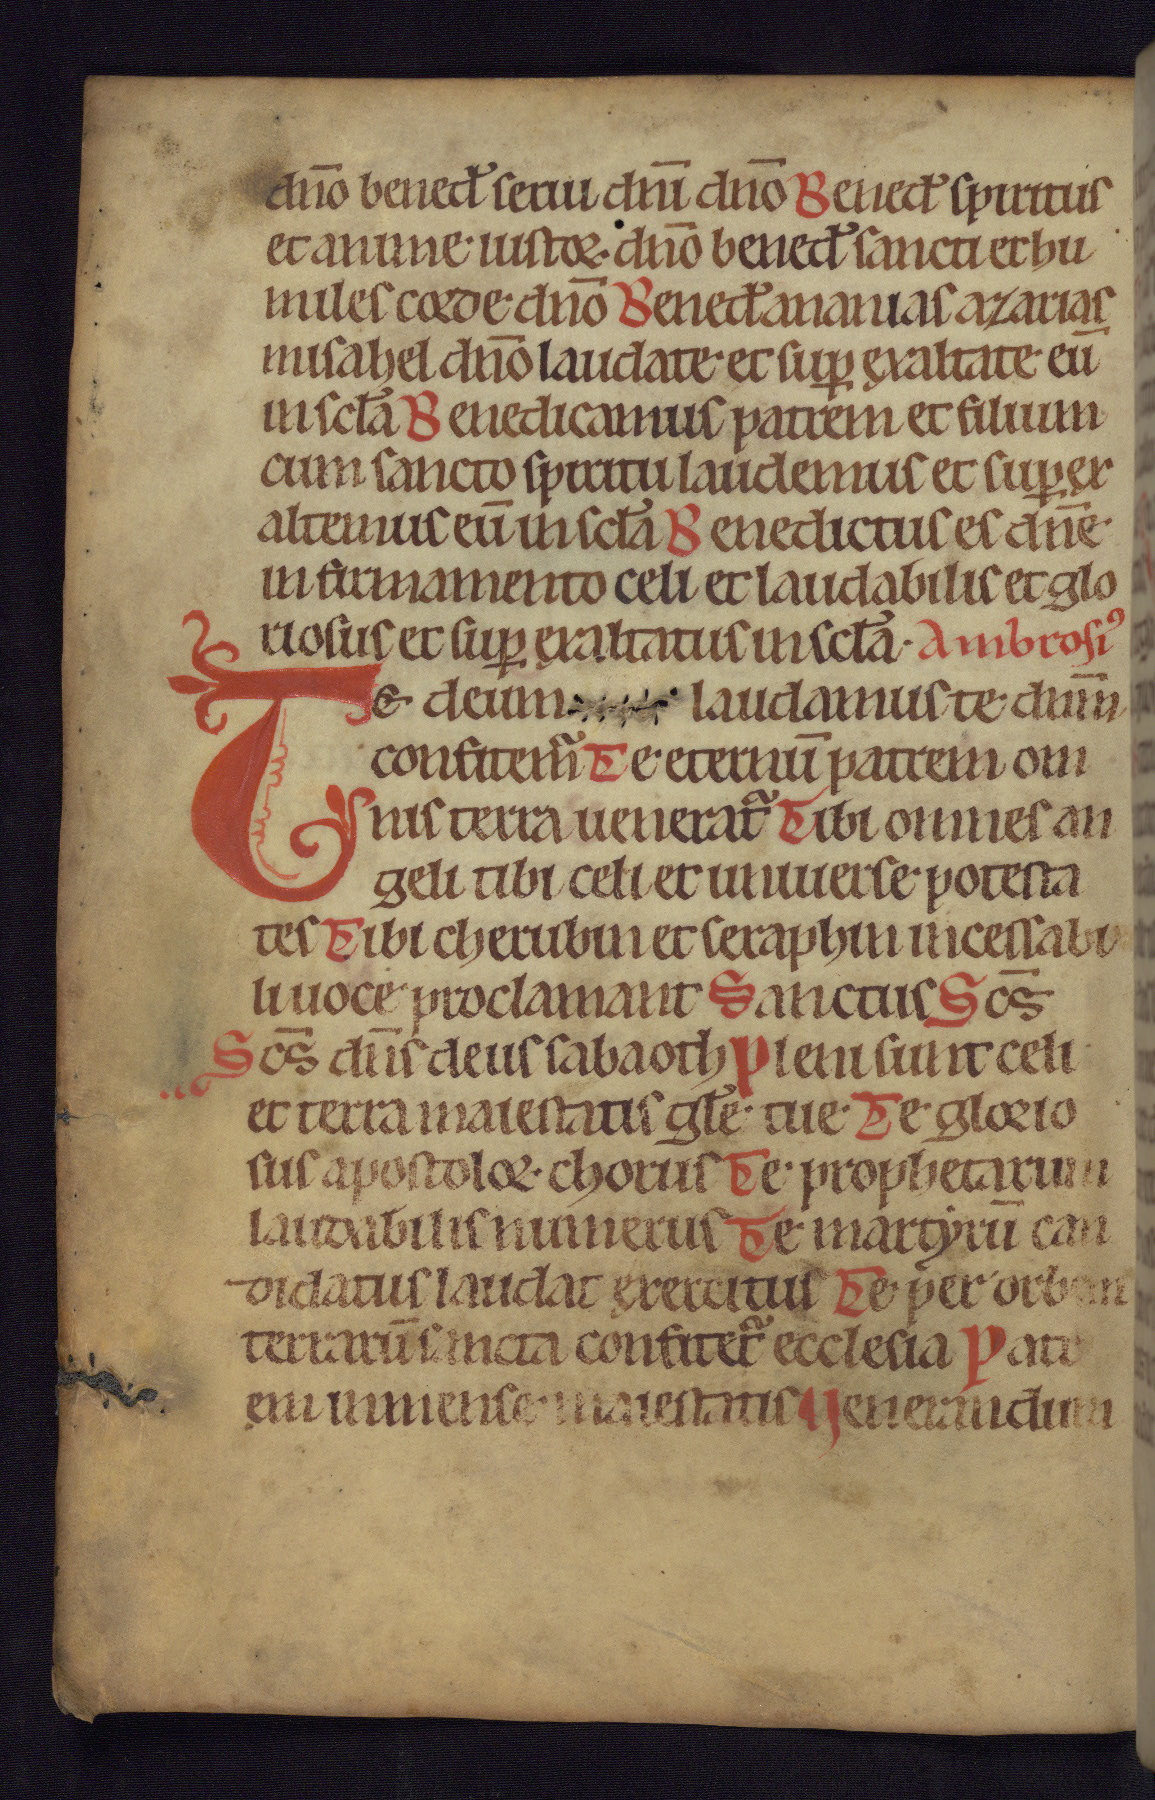 dn̄o bened̛ serui dn̄i dn̄o Bened̛ spiritus
et anime iustoꝝ dn̄o bened̛ sancti et hu
miles corde dn̄o Bened̛ ananias azarias
misahel dn̄o laudate et suꝑ exaltate eū
in scl̄a Benedicamus patrem et filium
cum sancto spiritu laudemus et suꝑ ex
altemus eū in scl̄a Benedictus es dn̄e
in firmamento celi et laudabilis et glo
riosus et suꝑ exaltatus in scl̄a. Ambrosiꝰ
Te deum laudamus te dn̄m
confitem̄ Te eternū patrem om
nis terra uenerat̄ Tibi omnes an
geli tibi celi et uniuerse potesta
tes Tibi cherubin et seraphin incessabi
li uoce proclamant Sanctus Sc̄s
Sc̄s dn̄s deus sabaoth Pleni sunt celi
et terra maiestatis gl̄e tue Te glorio
sus apostoloꝝ chorus Te prophetarum
laudabilis numerus Te martyrū can
didatus laudat exercitus Te per orbem
terrarū sancta confitet̄ ecclesia Patr
em inmense maiestatis Uenerandum